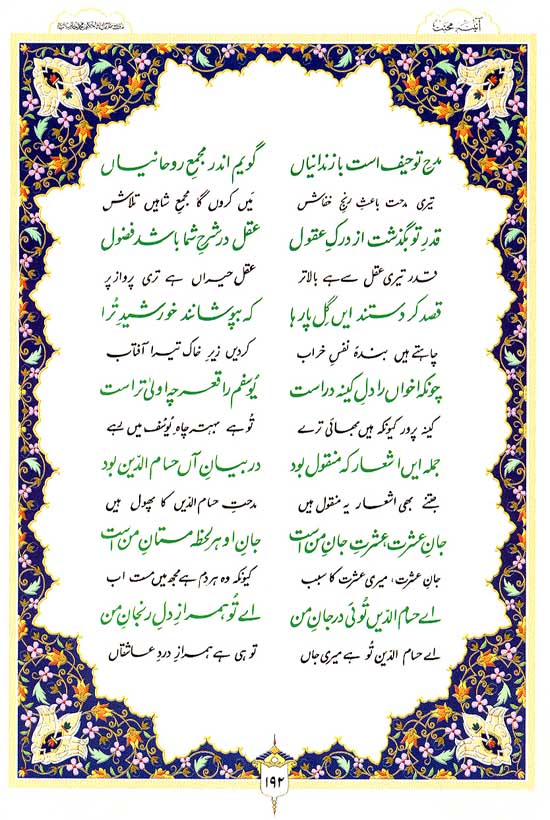 آئینۂ محبت
مدحِ تو حیف است با زندانیاں گویم اندر مجمعِ روحانیاں
تیری مدحت باعثِ رنجِ خفاش مَیں کروں گا مجمعِ شاہیں تلاش
قدرِ تو بگذشت از درکِ عقول عقل در شرحِ شما باشد فضول
قدر تیری عقل سے ہے بالاتر عقل حیراں ہے تری پرواز پر
قصد کر دستند ایں گِل پارہا کہ بپوشانند خورشیدِ تُرا
چاہتے ہیں بندۂ نفسِ خراب کردیں زیرِ خاک تیرا آفتاب
چونکہ اخواں را دلِ کینہ وراست یُوسفم را قعرِ چہ اولیٰ تراست
کینہ پرور کیونکہ ہیں بھائی ترے تُو ہے بہتر چاہِ یُوسف میں بسے
جملہ ایں اشعار کہ منقول بود در بیانِ آں حسام الدّین بود
جتنے بھی اشعار یہ منقول ہیں مدحتِ حسام الدّیں کا پھول ہیں
جانِ عشرت، عشرتِ جانِ من است جانِ او ہر لحظہ مستانِ من است
جانِ عشرت، میری عشرت کا سبب کیونکہ وہ ہر دم ہے مجھ میں مست اب
اے حسام الدّیں تُوئی در جانِ من اے تُو ہمراز دلِ رنجانِ من
اے حسام الدّین تُو ہے میری جاں تو ہی ہے ہمرازِ دردِ عاشقاں
۱۹۲